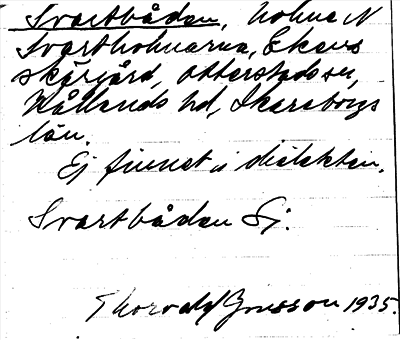 Svartbåden, holme N
Svartholmarna, Ekens
skärgård, Otterstads sn,
Kållands hd, Skaraborgs
län.
Ej finnet i dialekten.
Svartbåden Sj.
Thorvald Jonsson 1935.